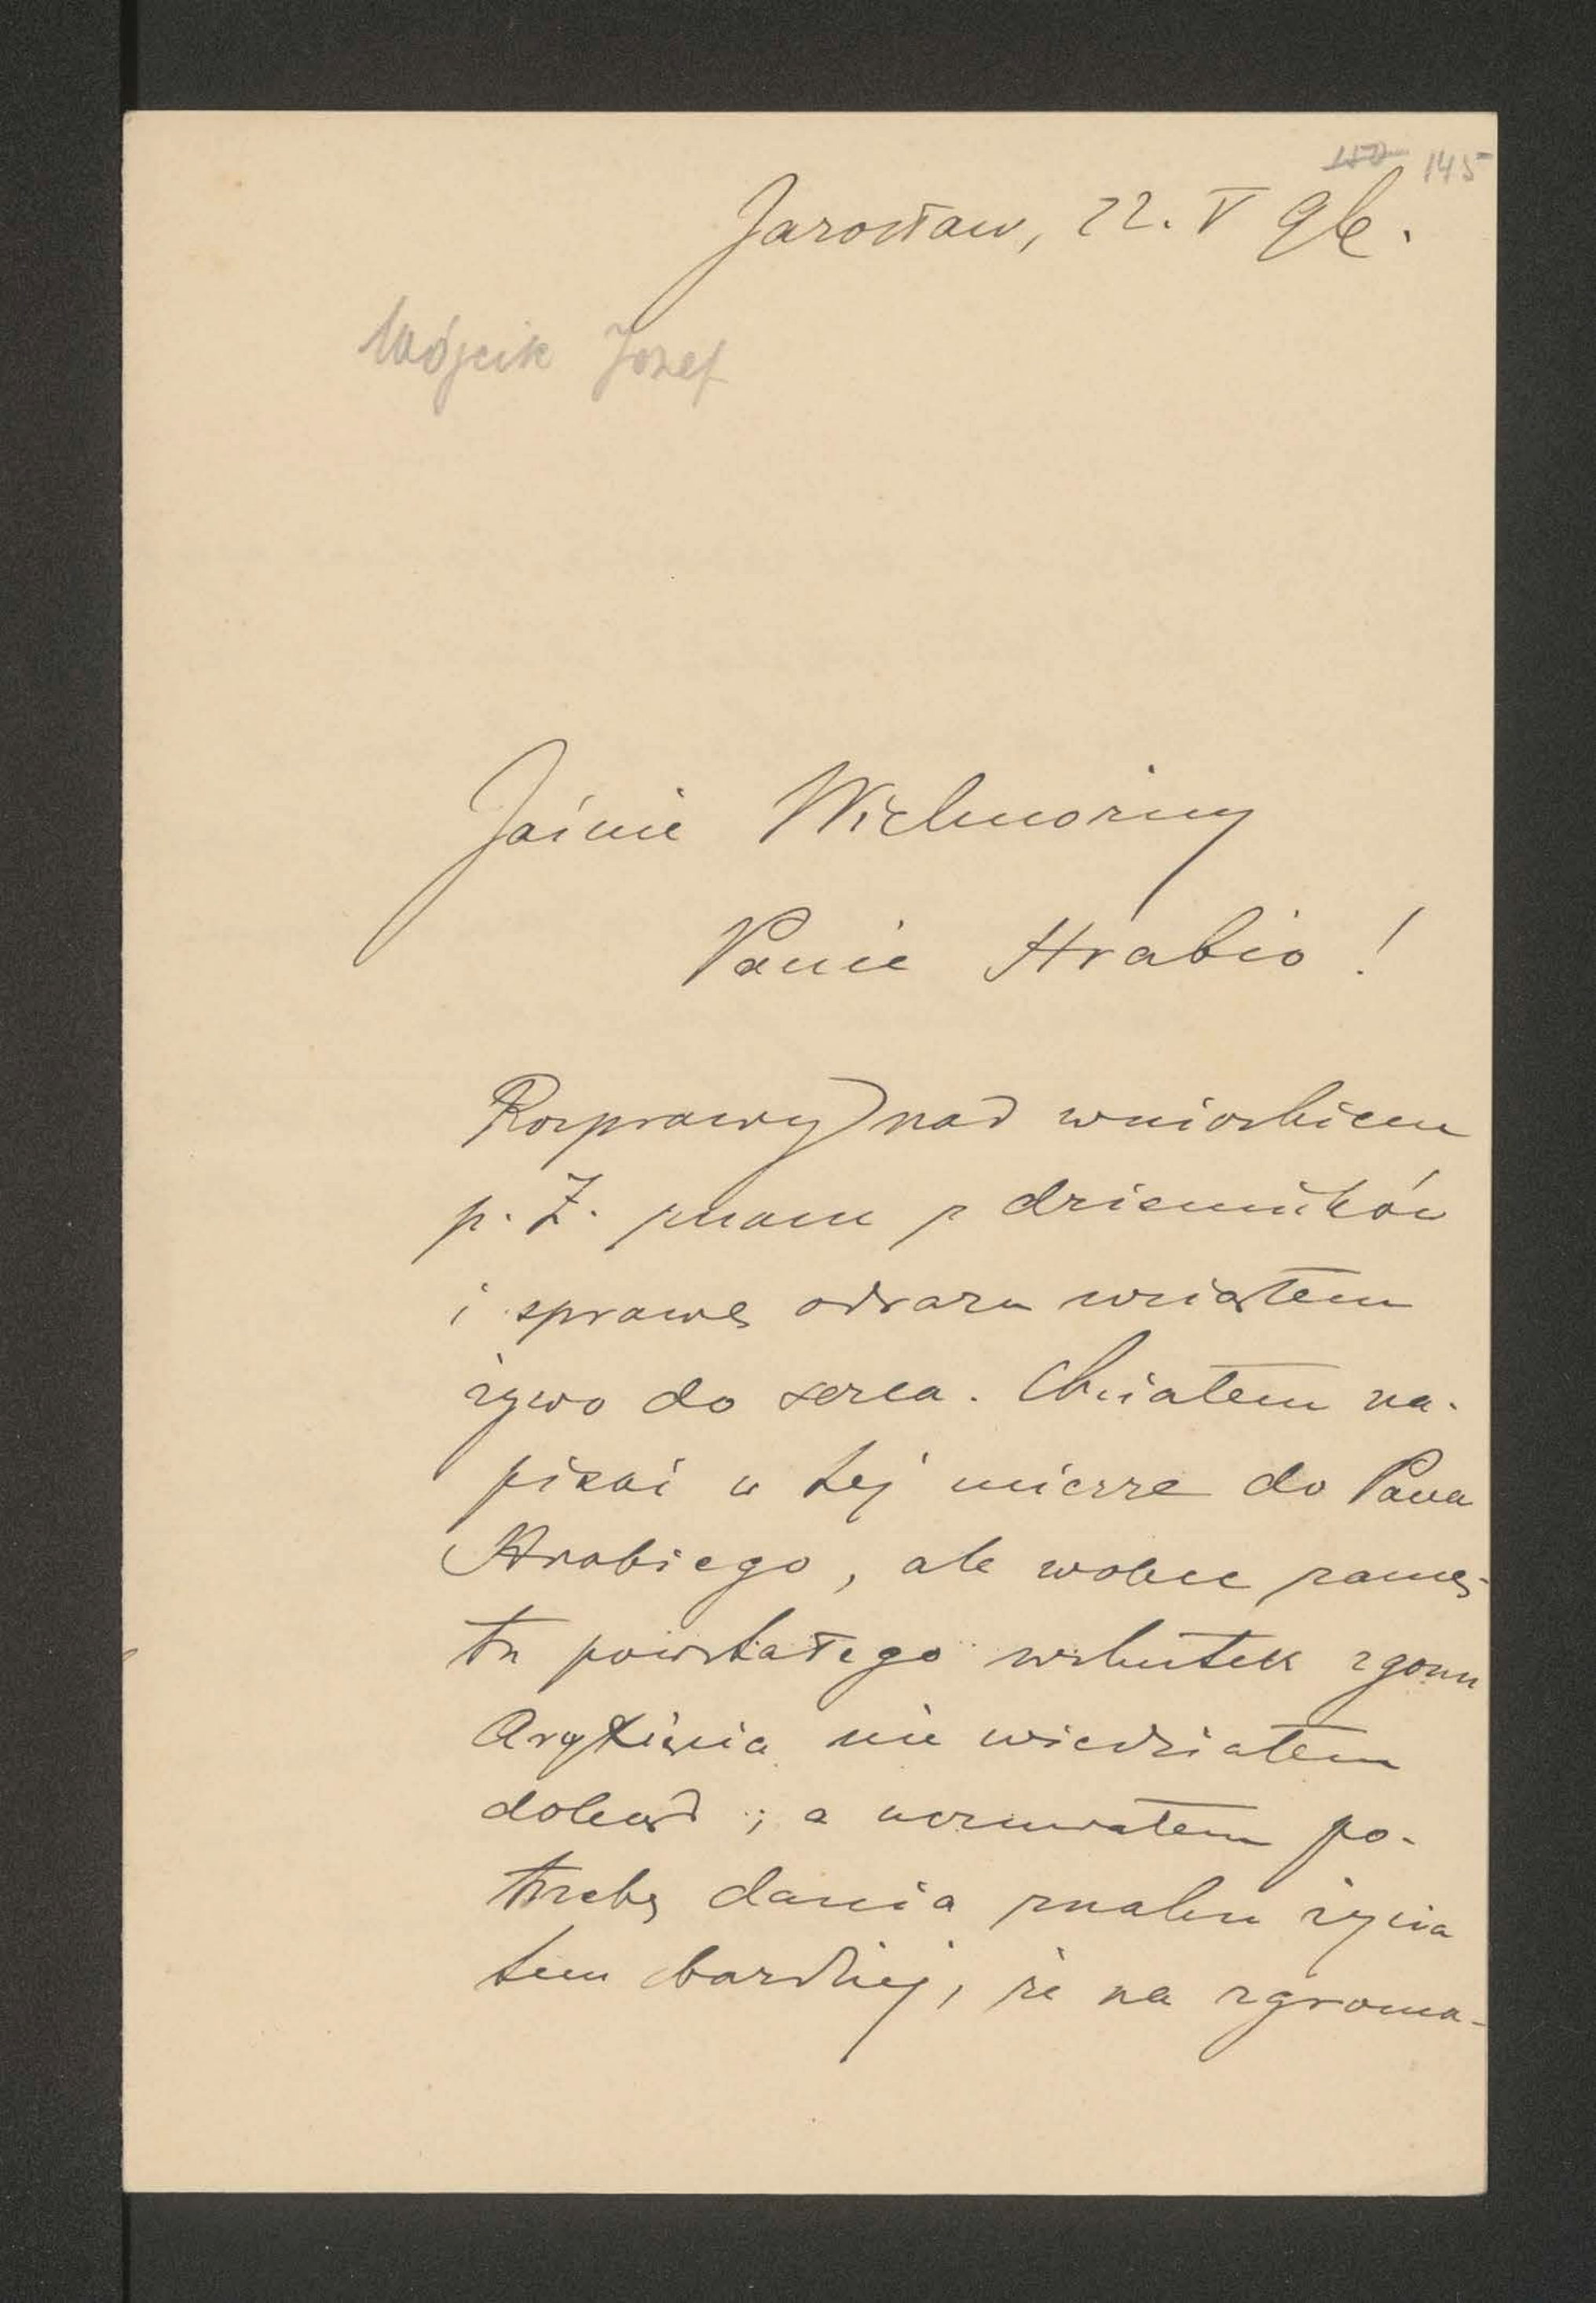 145
Jarosław, 22. V 96.
Wójcik Józef
Jaśnie Wielmożny
Panie Hrabio!
Rozprawy nad wnioskiem
p. Z. znam z dzienników
i sprawę odrazu wziąłem
żywo do serca. Chciałem na-
pisać w tej mierze do Pana
Hrabiego, ale wobec zamę-
tu powstałego wskutek zgonu
Arcyksięcia nie wiedziałem
dokąd; a uczuwałem po-
trzebę dania znaku życia
tem bardziej, że na zgroma-